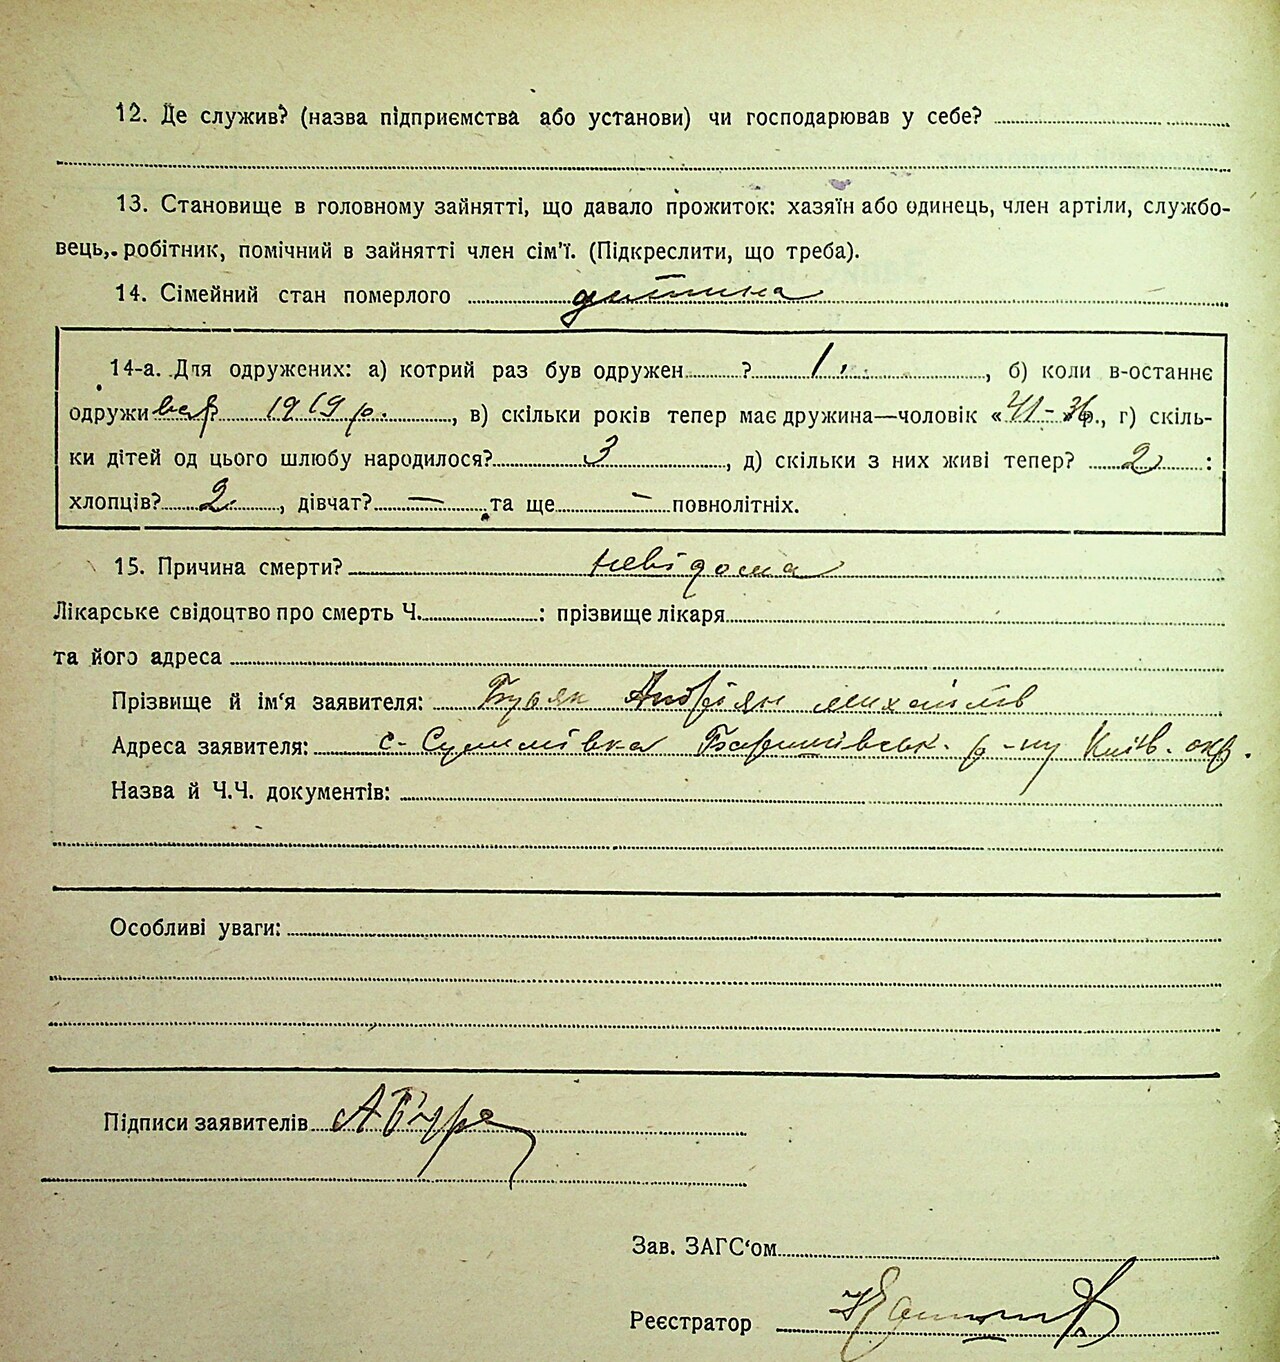 12. Де служив? (назва підприємства або установи) чи господарював у себе?
13. Становище в головному зайнятті, що давало прожиток: хазяїн або одинець, член артіли, службо-
вець, робітник, помічний в зайнятті член сім'ї. (Підкреслити, що треба).
14. Сімейний стан померлого дитина
14-а. Для одружених: а) котрий раз був одружен ? 1, б) коли в-останнє
одружи вавс? 1919 р., в) скільки років тепер має дружина—чоловік «41-36» р., г) скіль-
ки дітей од цього шлюбу народилося? 3, д) скільки з них живі тепер? 2 :
хлопців? 2, дівчат? — та ще — повнолітніх.
15. Причина смерти? невідома
Лікарське свідоцтво про смерть Ч. : прізвище лікаря
та його адреса
Прізвище й ім'я заявителя: Андріян Михайлів
Адреса заявителя: с- Сулимівка Баришівськ. р-ну Київ. окр.
Назва й Ч.Ч. документів:
Особливі уваги:
Підписи заявителів
Зав. ЗАГС'ом
Реєстратор